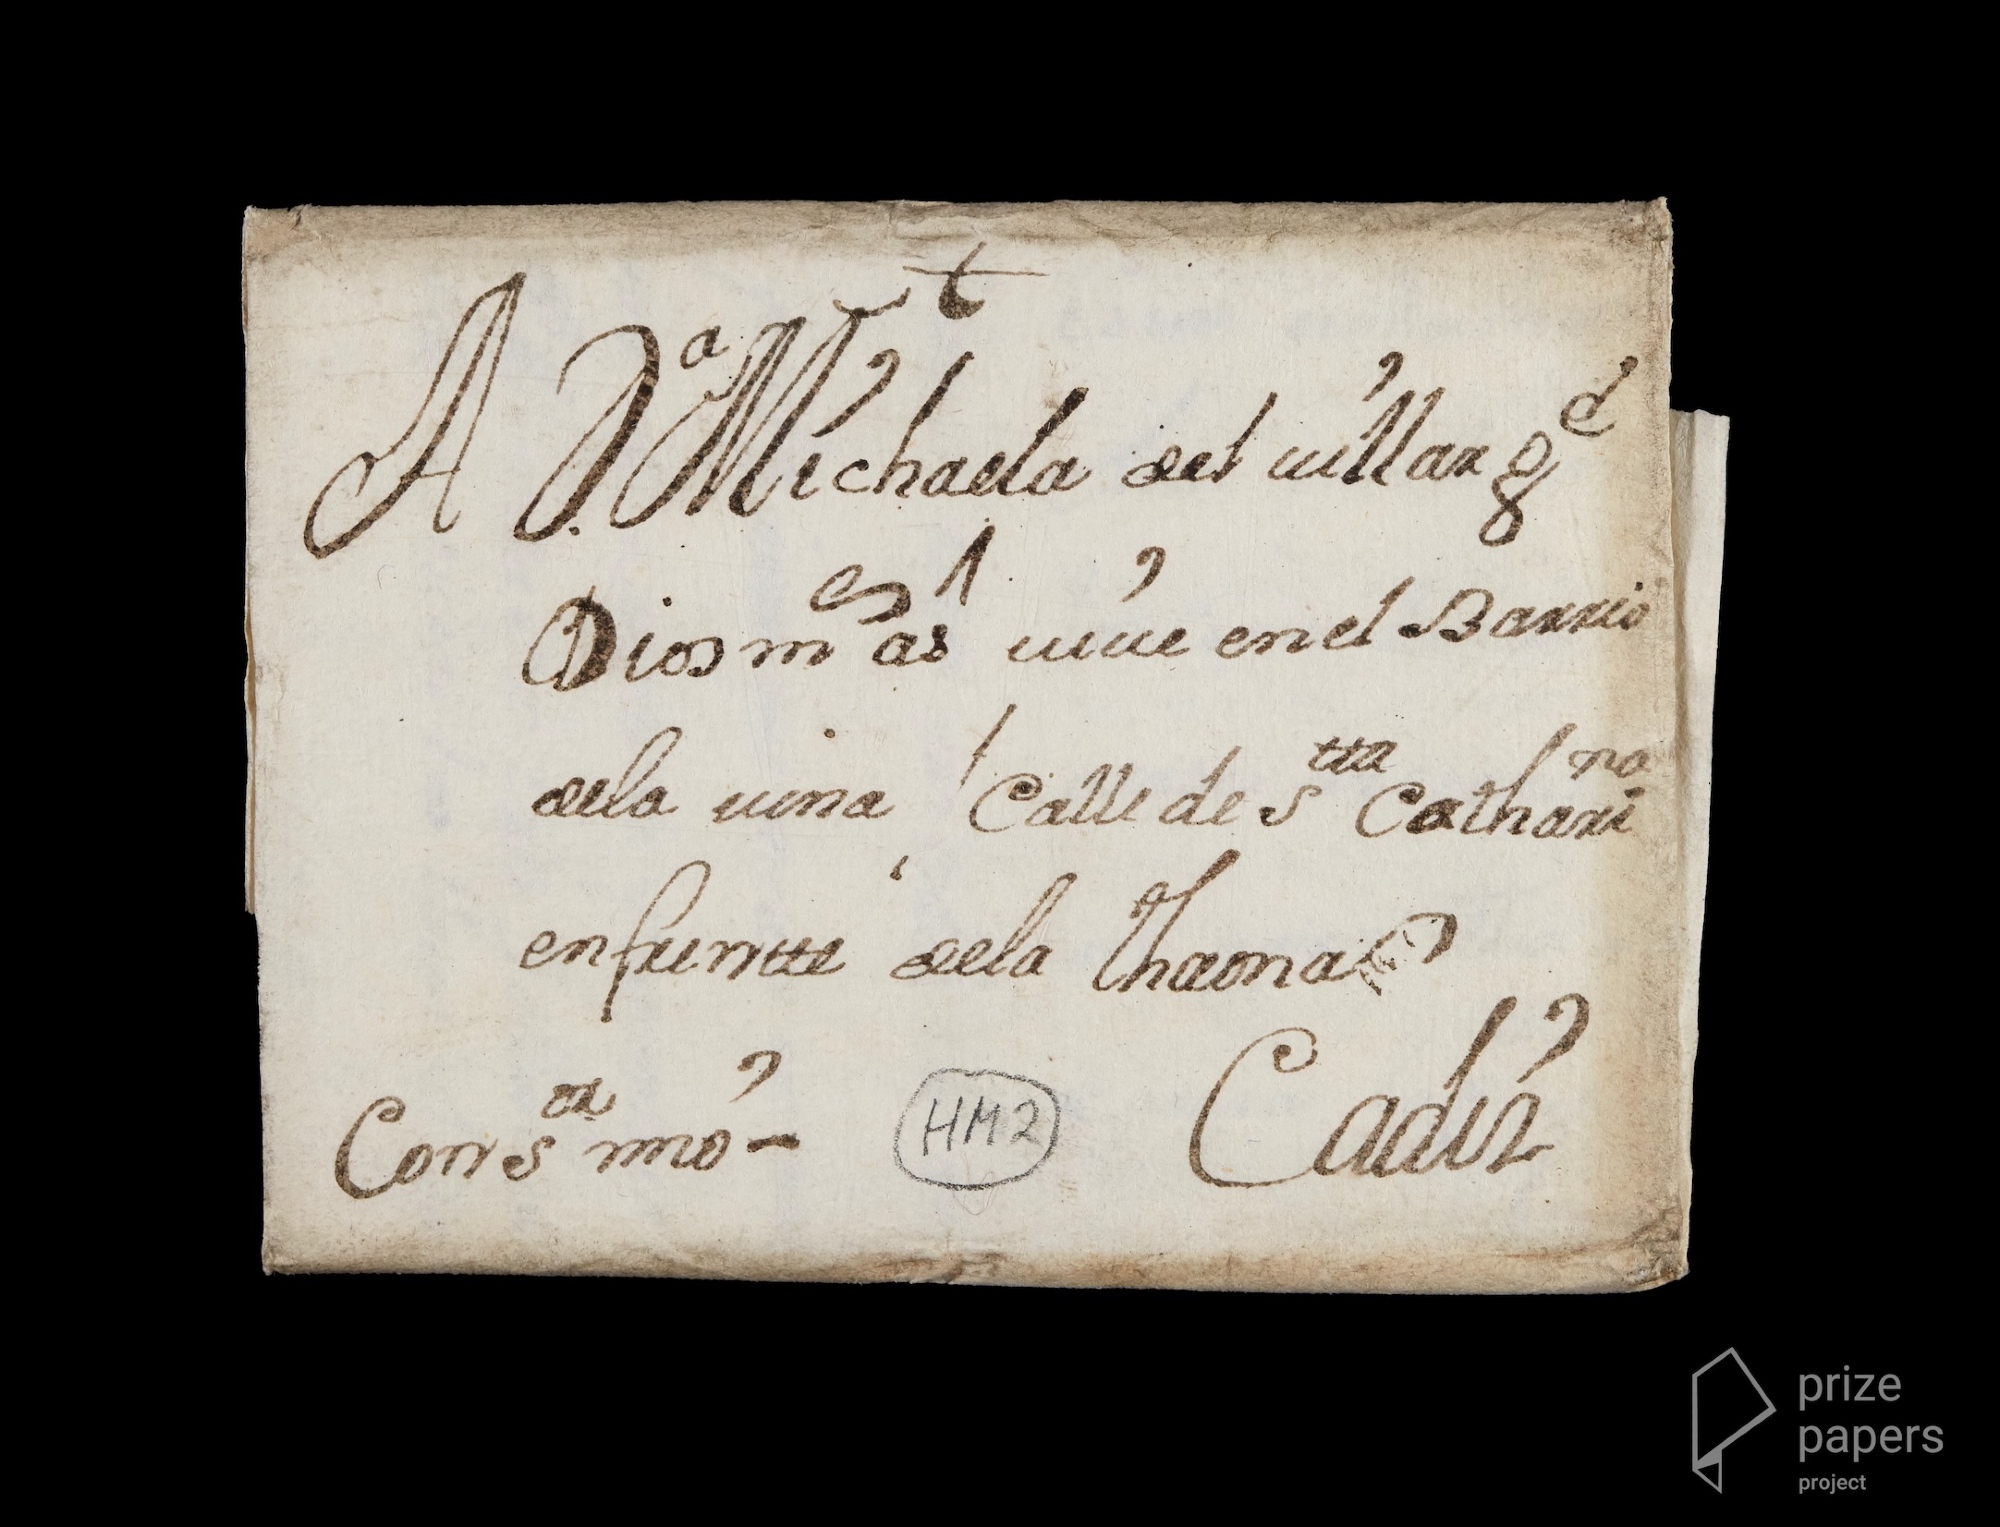 †
A D.ª Michaela del uillar g.e
Dios m.es as uiue en el Barrio
dela uina Calle de S.tta Catharina
enfrentte dela thaona
Conss.ta mno - Cadiz
HM2
prize
papers
project